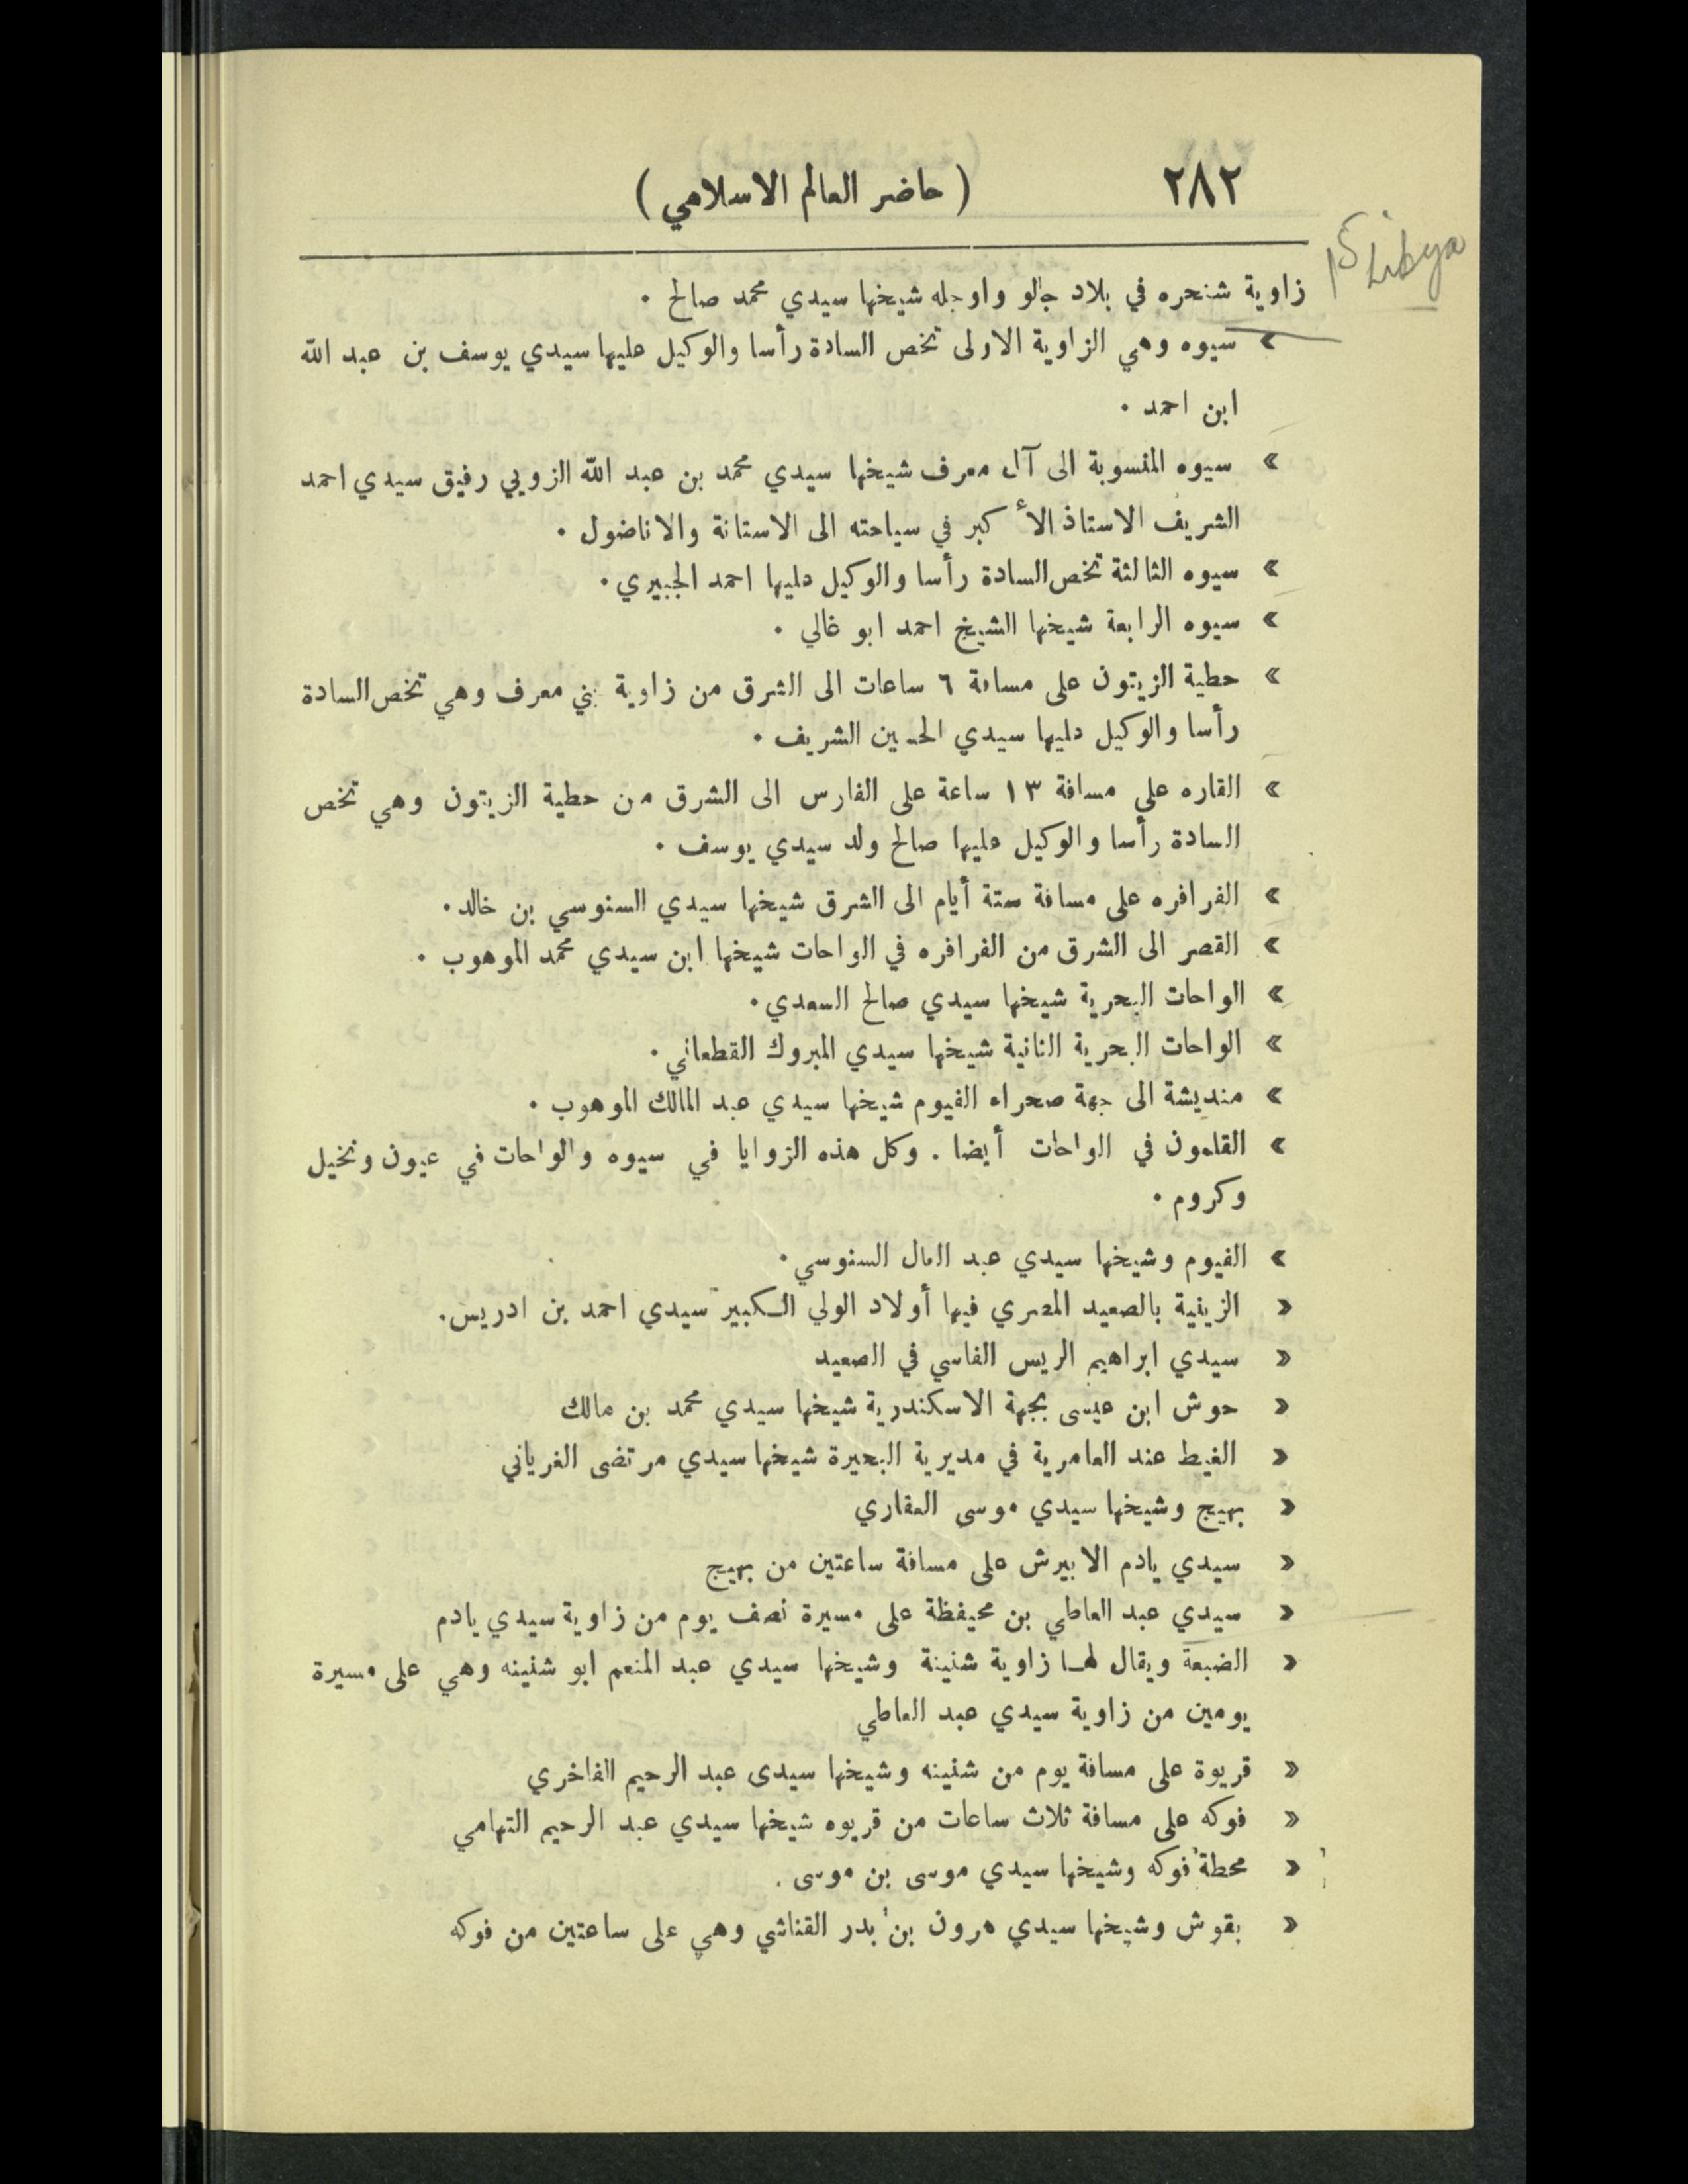 ٢٨٢
( حاضر العالم الاسلامي )
Libya
زاوية شنحره في بلاد جالو واوجله شيخها سيدي محمد صالح .
» سيوه وهي الزاوية الاولى تخص السادة رأسا والوكيل عليها سيدي يوسف بن عبد الله
ابن احمد .
» سيوه المنسوبة الى آل معرف شيخها سيدي محمد بن عبد الله الزويي رفيق سيدي احمد
الشريف الاستاذ الأ كبر في سياحته الى الاستانة والاناضول .
» سيوه الثالثة تخص السادة رأسا والوكيل عليها احمد الجبيري .
» سيوه الرابعة شيخها الشيخ احمد ابو غالي .
» حطية الزيتون على مسافة ٦ ساعات الى الشرق من زاوية بني معرف وهي تخص السادة
رأسا والوكيل عليها سيدي الحسين الشريف .
» القاره على مسافة ١٣ ساعة على الفارس الى الشرق من حطية الزيتون وهي تخص
السادة رأسا والوكيل عليها صالح ولد سيدي يوسف .
» الفرافره على مسافة ستة أيام الى الشرق شيخها سيدي السنوسي بن خالد .
» القصر الى الشرق من الفرافره في الواحات شيخها ابن سيدي محمد الموهوب .
» الواحات البحرية شيخها سيدي صالح السعدي .
» الواحات البحرية الثانية شيخها سيدي المبروك القطعاني .
» منديشة الى جهة صحراء الفيوم شيخها سيدي عبد المالك الموهوب .
» القلمون في الواحات أيضا . وكل هذه الزوايا في سيوه والواحات في عيون ونخيل
وكروم .
» الفيوم وشيخها سيدي عبد العال السنوسي .
« الزينية بالصعيد المصري فيها أولاد الولي الكبير سيدي احمد بن ادريس .
« سيدي ابراهيم الريس الفاسي في الصعيد
« حوش ابن عيسى بجهة الاسكندرية شيخها سيدي محمد بن مالك
« الغيط عند العامرية في مديرية البحيرة شيخها سيدي مرتضى الغرياني
« بهيج وشيخها سيدي موسى العقاري
« سيدي يادم الابيرش على مسافة ساعتين من بهيج
« سيدي عبد العاطي بن محيفظة على مسيرة نصف يوم من زاوية سيدي يادم
« الضبعة ويقال لها زاوية شنينة وشيخها سيدي عبد المنعم ابو شنينه وهي على مسيرة
يومين من زاوية سيدي عبد العاطي
« قريوة على مسافة يوم من شنينه وشيخها سيدى عبد الرحيم الفاخري
« فوكه على مسافة ثلاث ساعات من قريوه شيخها سيدي عبد الرحيم التهامي
« محطة فوكه وشيخها سيدي موسى بن موسى .
« بقوش وشيخها سيدي هرون بن بدر القناشي وهي على ساعتين من فوكه